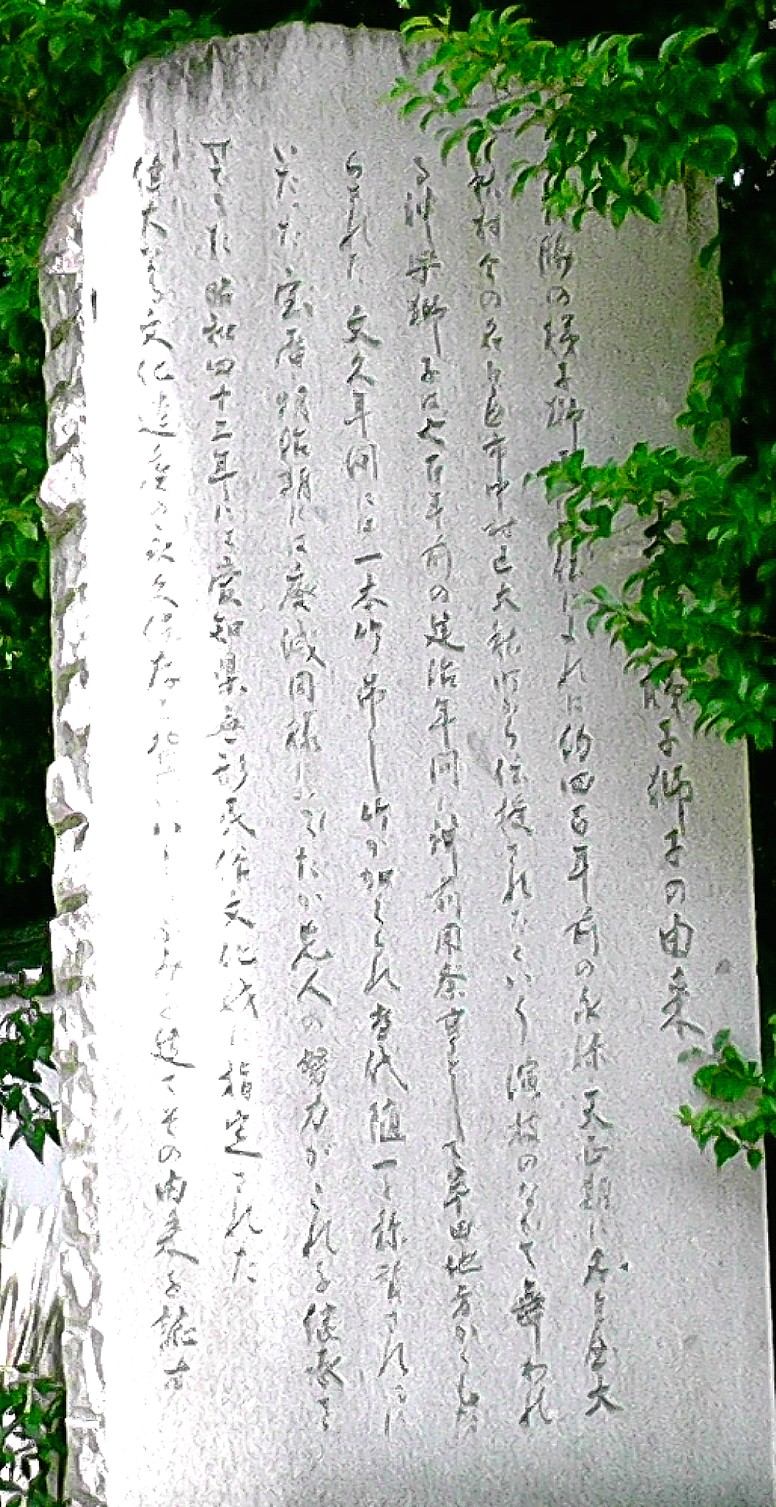 子獅子の由来
梯子獅 によれは約四百年前の永禄天正期に名古屋大
秋村今の名古屋市中村区大秋町から伝授されたという演技のなかで舞われ
る神楽獅子は七百年前の建治年間に神前用祭事として知田地方から
らされた 文久年間には一本竹吊し竹が加えられ当代随一と称賛されるに
いたった 宝暦 明治期には廃滅同様 たが先人の努力がこれを継承さ
せてきた 昭和四十三年には愛知県無形民俗文化財に指定された
偉大なる文化遺産の永久保存を 建てその由来を誌す